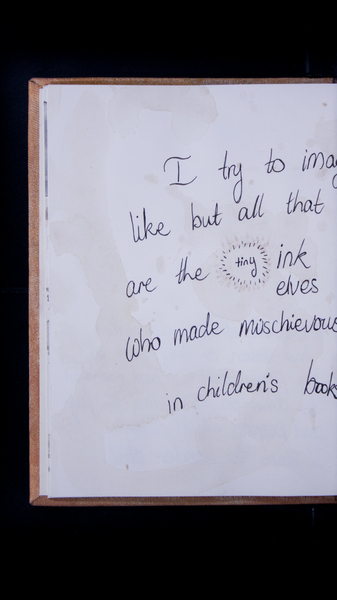 I try to imag
like but all that
are the tiny ink elves
who made mischievous
in children's books